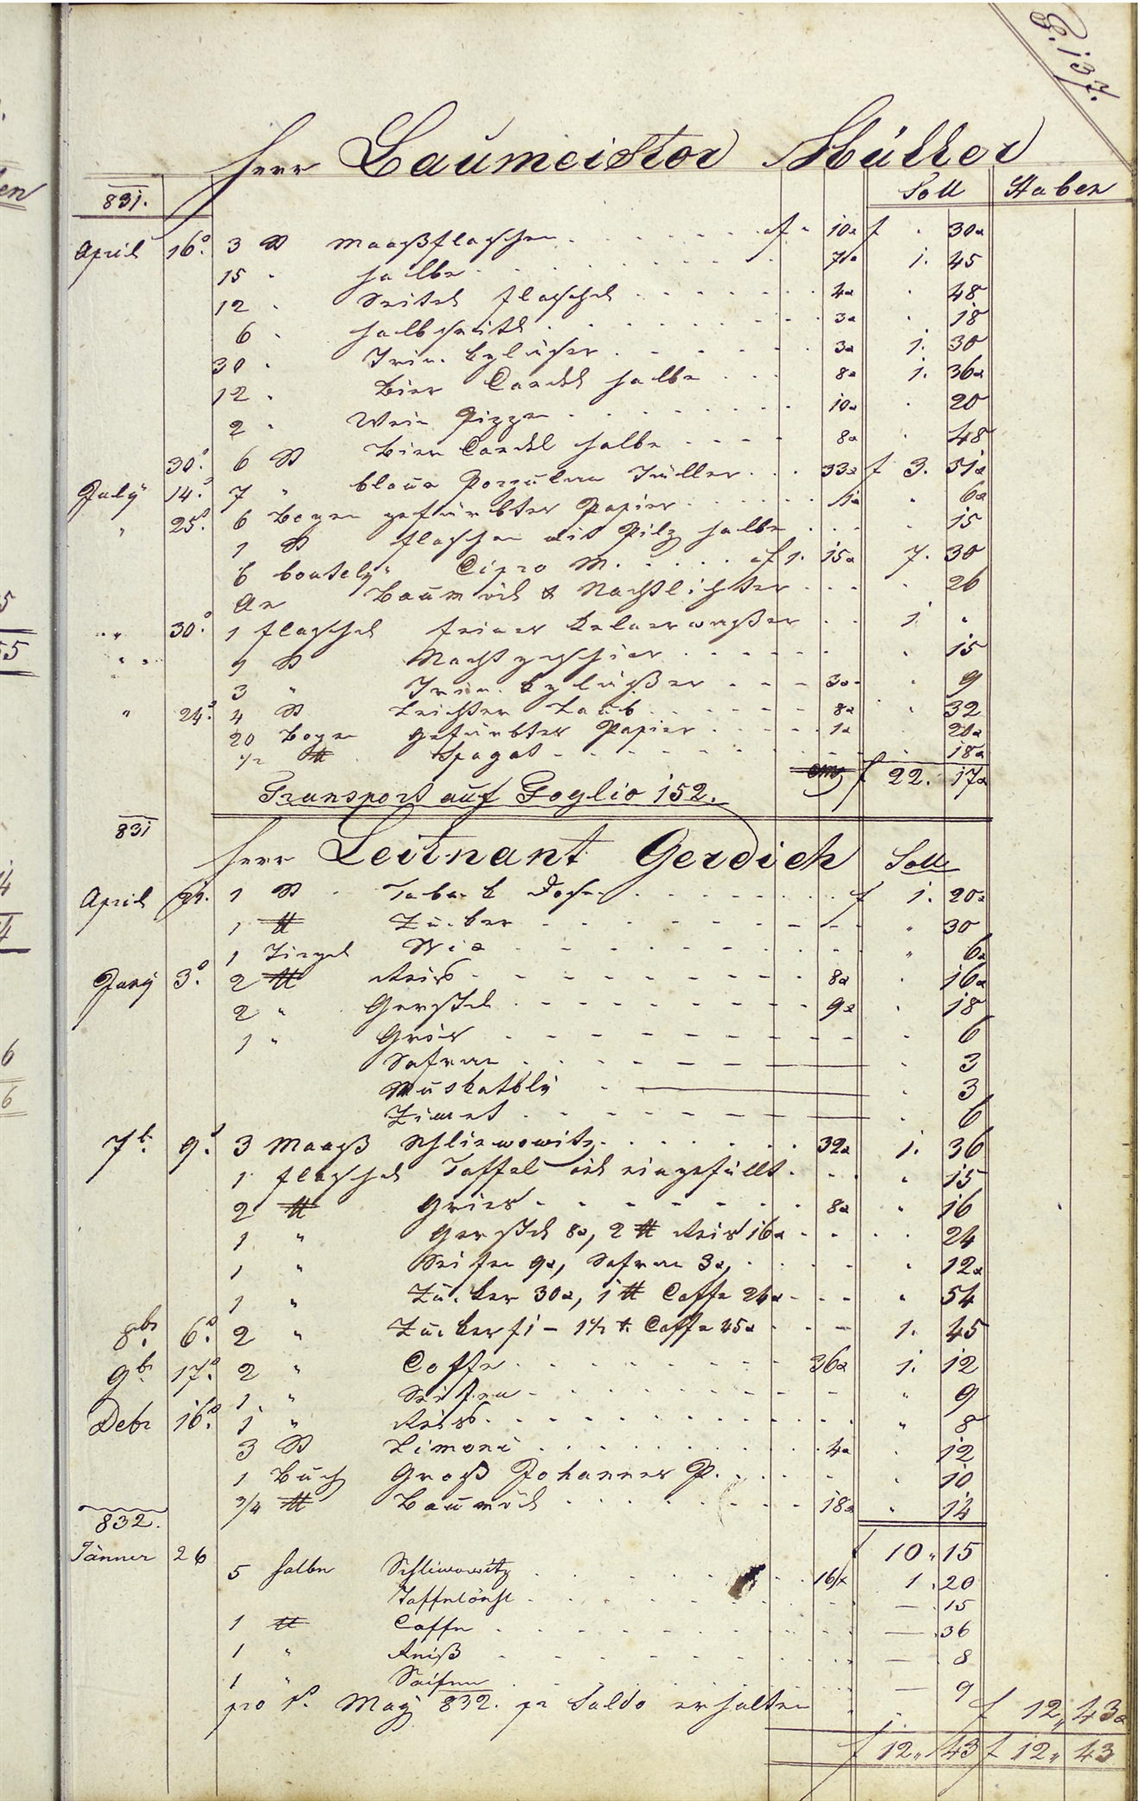 P. 137.
Herr Baumeister Müller
831. Soll Haben
April 16. 3 St Maaßflaschen f 10x f 30x
15 " halbe 7x 1. 45
12 " Seitel flaschel 4x 48
6 " halbseitel 3x 18
30 " Trink Gläser 3x 1. 30
12 " Bier Candel halbe 8x 1. 36x
2 " Wein 10x 20
30. 6 St Bier Candel halbe 8x 48
July 14. 7 " blaue Porzulan Tüller 33x f 3. 51x
" 25. 6 Bogen gefärbter Papier 1x 6x
1 St flaschen mit Pilz halbe 15
6 boutely Cipro W. af 1. 15x 7. 30
An Baumöhl & Nachtlichter 26
" 30. 1 flaschel feines 1. "
" " 1 St Nachtgeschier 15
3 " Trink Gläser 3x 9
" 24. 4 St Leichter 8x 32
20 Bogen gefärbter Papier 1x 20x
1/2 ℔ Spagat 18x
f 22. 17x
Transport auf Foglio 152.
831
Herr Leitnant Gerdich Soll
April 21. 1 St Taback Dosen f 1. 20x
1 ℔ Zucker 30
1 Tiegel Wix 6x
Juny 3. 2 ℔ Reis 8x 16x
2 " Gerstel 9x 18
1 " Gries 6
Safran 3
Muskatblü 3
Zimet 6
7b. 9. 3 Maaß Schliwowitz 32x 1. 36
1 flaschel Taffel öhl eingefüllt 15
2 ℔ Gries 8x 16
1 " Gerstel 8x, 2 ℔ Reis 16x 24
1 " Seifen 9x, Safran 3x, 12x
1 " Zucker 30x, 1 ℔ Caffe 24x 54
8br. 6. 2 " Zucker f 1 - 1 1/2 ℔ Caffe 45x 1. 45
9b. 17. 2 " Caffe 36x 1. 12
1 " Seifen 9
Debr 16. 1 " Reis 8
3 St Limoni 4x 12
1 Buch Groß Johannes P. 10
3/4 ℔ Baumöhl 18x 14
832. f 10. 15
Jänner 26 5 halbe Schliwowitz 16x 1. 20
Taffelöhl — 15
1 ℔ Caffe — 36
1 " Reiß — 8
1 " Saifen — 9
pro P. May 832. pr Saldo erhalten f 12, 43x
f 12, 43 f 12, 43